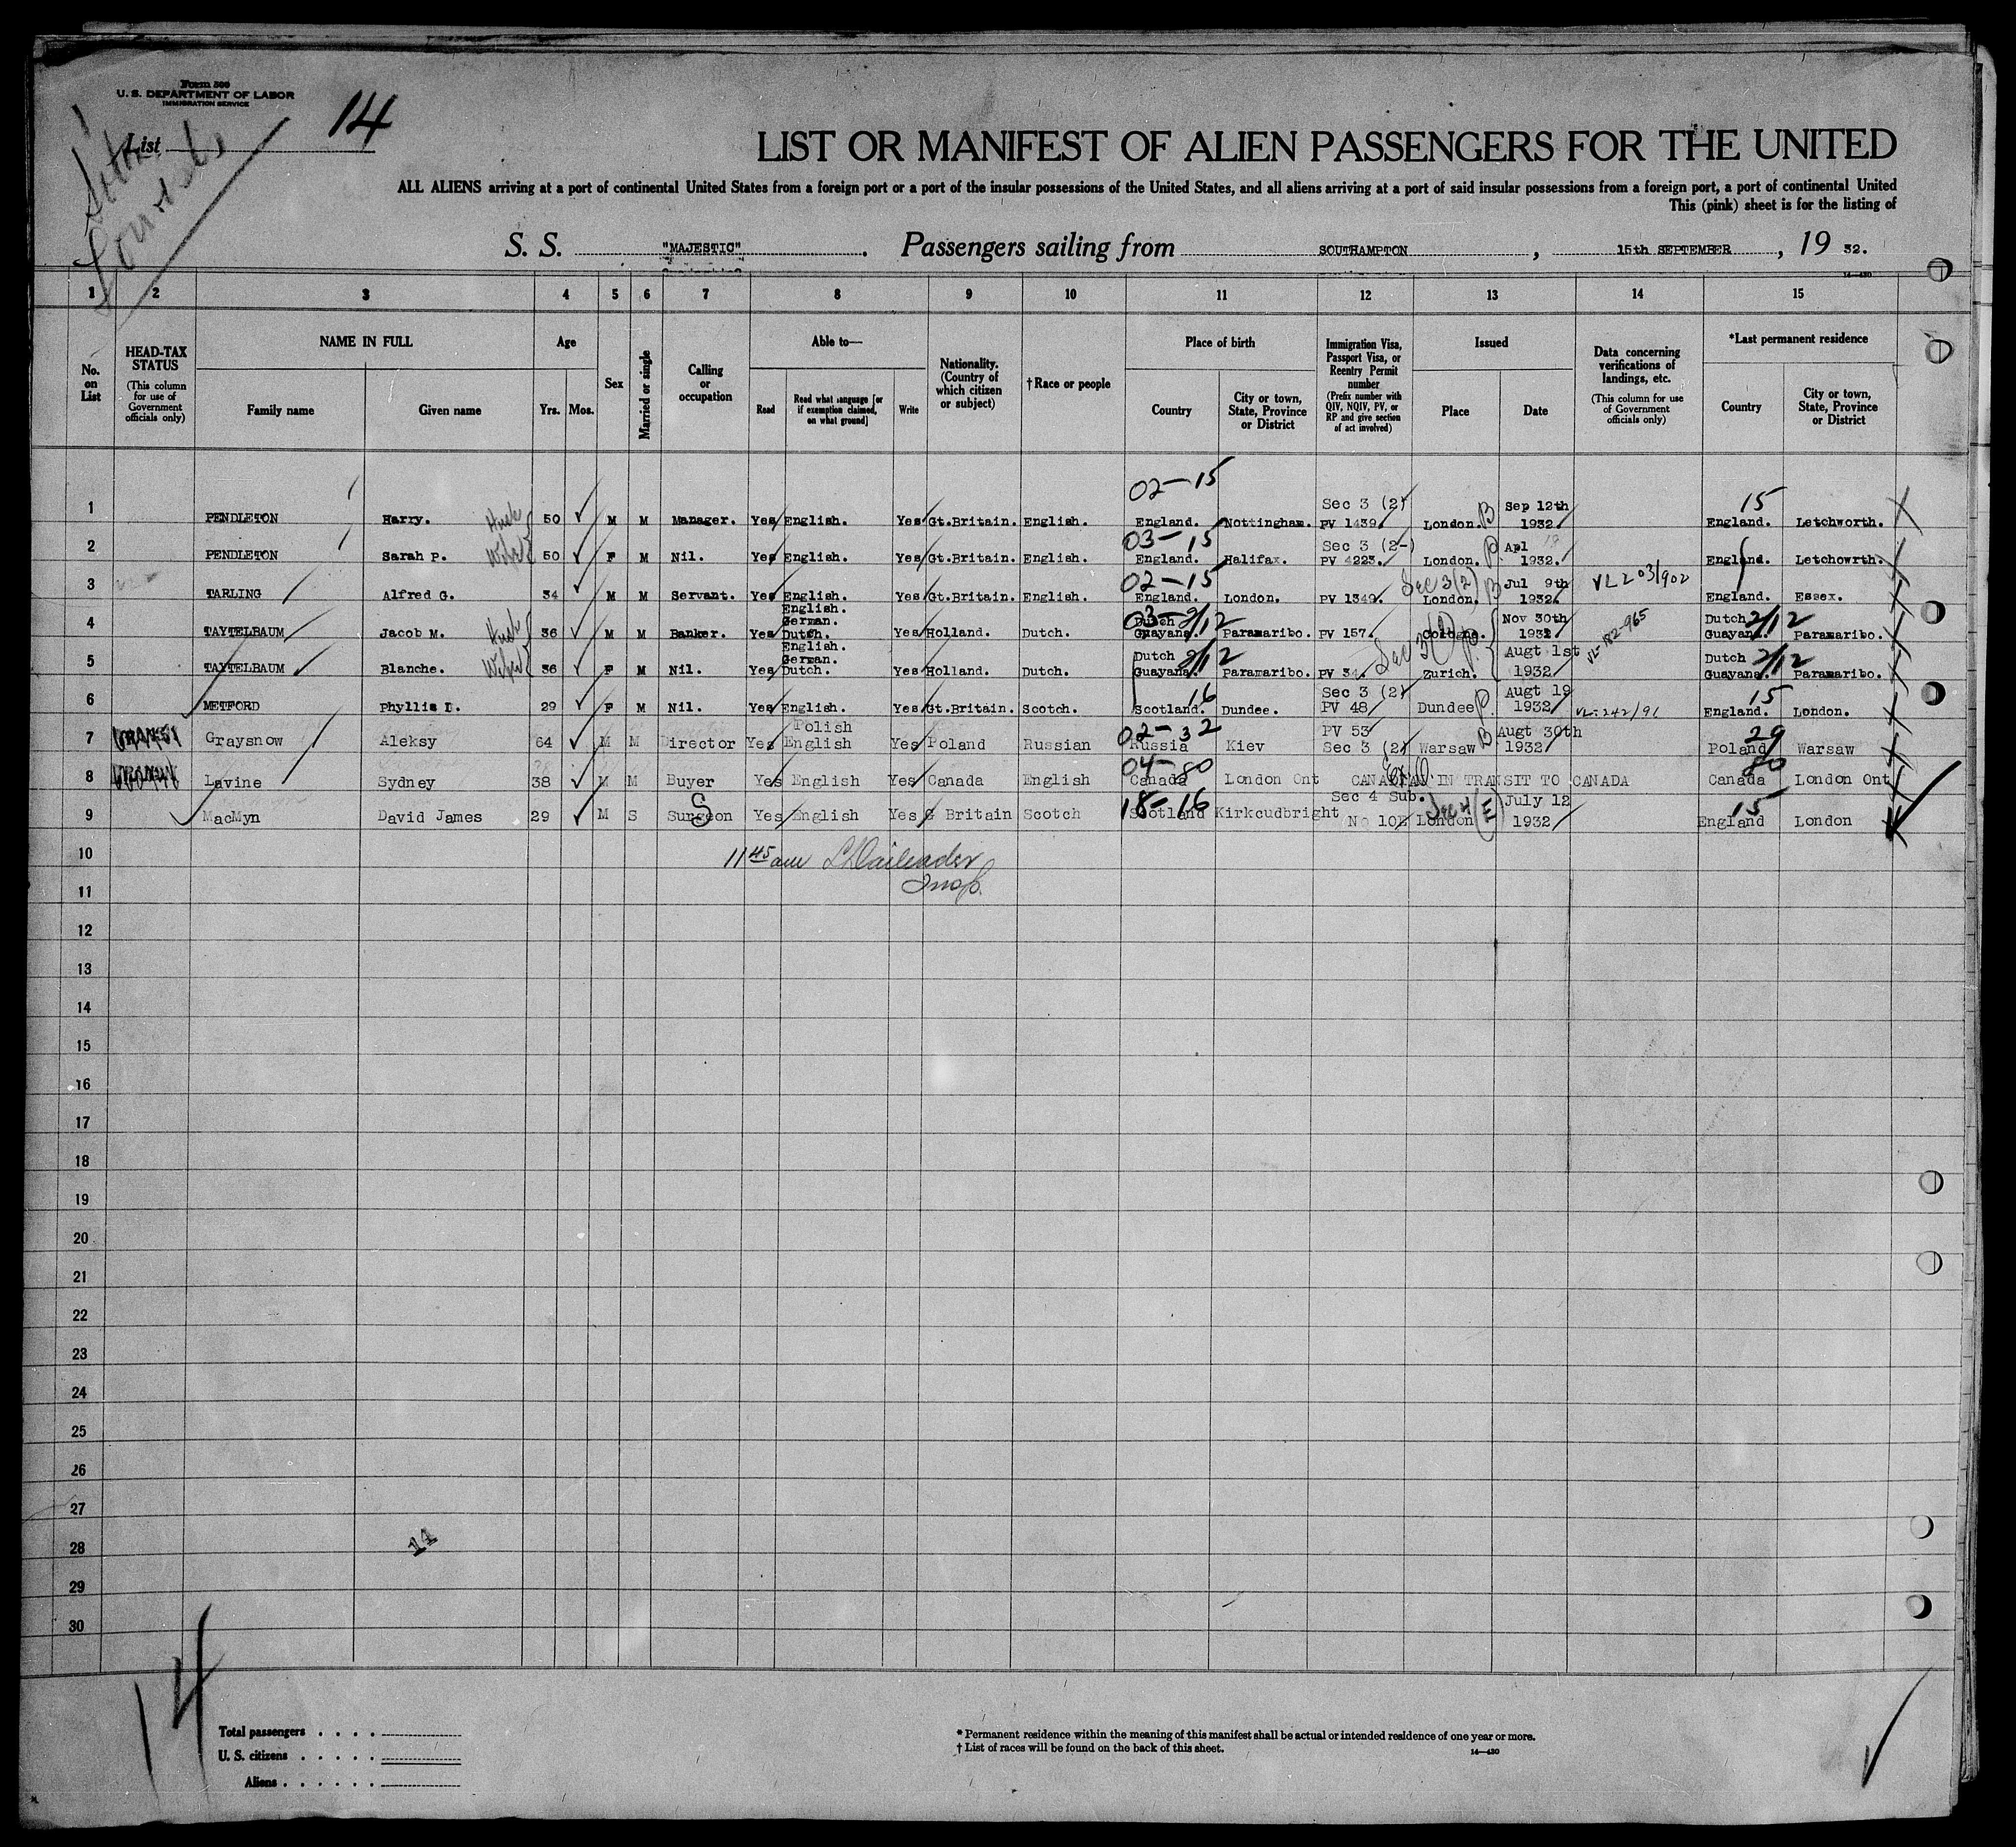 Form 500
U. S. DEPARTMENT OF LABOR
IMMIGRATION SERVICE
List
14
LIST OR MANIFEST OF ALIEN PASSENGERS FOR THE UNITED
ALL ALIENS arriving at a port of continental United States from a foreign port or a port of the insular possessions of the United States, and all aliens arriving at a port of said insular possessions from a foreign port, a port of continental United
This (pink) sheet is for the listing of
S. S. "MAJESTIC". Passengers sailing from SOUTHAMPTON, 15th SEPTEMBER, 19 32.
14—430
1 2 3 4 5 6 7 8 9 10 11 12 13 14 15
No. on List
HEAD-TAX STATUS (This column for use of Government officials only)
NAME IN FULL
Family name
Given name
Age
Yrs. Mos.
Sex
Married or single
Calling or occupation
Able to—
Read
Read what language [or if exemption claimed, on what ground]
Write
Nationality. (Country of which citizen or subject)
†Race or people
Place of birth
Country
City or town, State, Province or District
Immigration Visa, Passport Visa, or Reentry Permit number (Prefix number with QIV, NQIV, PV, or RP and give section of act involved)
Issued
Place
Date
Data concerning verifications of landings, etc. (This column for use of Government officials only)
*Last permanent residence
Country
City or town, State, Province or District
02-15
Sec 3 (2) Sep 12th 15
1 PENDLETON Harry. 50 M M Manager. Yes English. Yes Gt.Britain. English. England. Nottingham. PV 1439. London. B 1932. England. Letchworth.
03-15 Sec 3 (2-) Apl
2 PENDLETON Sarah P. Wife 50 F M Nil. Yes English. Yes Gt.Britain. English. England. Halifax. PV 4223. London. P. 1932. England. Letchowrth.
02-15 Sec 3(2) B Jul 9th VL203/902
3 TARLING Alfred G. 34 M M Servant. Yes English. Yes Gt.Britain. English. England. London. PV 1349. London. 1932. England. Essex.
English. German. 03-2/12 Dutch Nov 30th Dutch 2/12
4 TAYTELBAUM Jacob M. 36 M M Banker. Yes Dutch. Yes Holland. Dutch. Guayana. Paramaribo. PV 157. Cologne. 1931 VL-182-965 Guayana. Paramaribo.
English. German. Dutch 2/12 Sec 3(2) P. Augt 1st Dutch 2/12
5 TAYTELBAUM Blanche. Wife 36 F M Nil. Yes Dutch. Yes Holland. Dutch. Guayana. Paramaribo. PV 34. Zurich. 1932 Guayana. Paramaribo.
16 Sec 3 (2) Augt 19 15
6 METFORD Phyllis I. 29 F M Nil. Yes English. Yes Gt.Britain. Scotch. Scotland. Dundee. PV 48 Dundee P. 1932 VL-242/91 England. London.
Polish 02-32 PV 53 Augt 30th 29
7 Graysnow Aleksy 64 M M Director Yes English Yes Poland Russian Russia Kiev Sec 3 (2) Warsaw B 1932 Poland Warsaw
04-80 80
8 Lavine Sydney 38 M M Buyer Yes English Yes Canada English Canada London Ont CANADIAN IN TRANSIT TO CANADA Canada London Ont
18-16 Sec 4 Sub. Sec 4 (E) July 12 15
9 MacMyn David James 29 M S Surgeon Yes English Yes G Britain Scotch Scotland Kirkcudbright No 10E London 1932 England London
10
11 45 am
Insp.
11
12
13
14
15
16
17
18
19
20
21
22
23
24
25
26
27
28
29
30
14
14
Total passengers
U. S. citizens
Aliens
* Permanent residence within the meaning of this manifest shall be actual or intended residence of one year or more.
† List of races will be found on the back of this sheet.
14—430